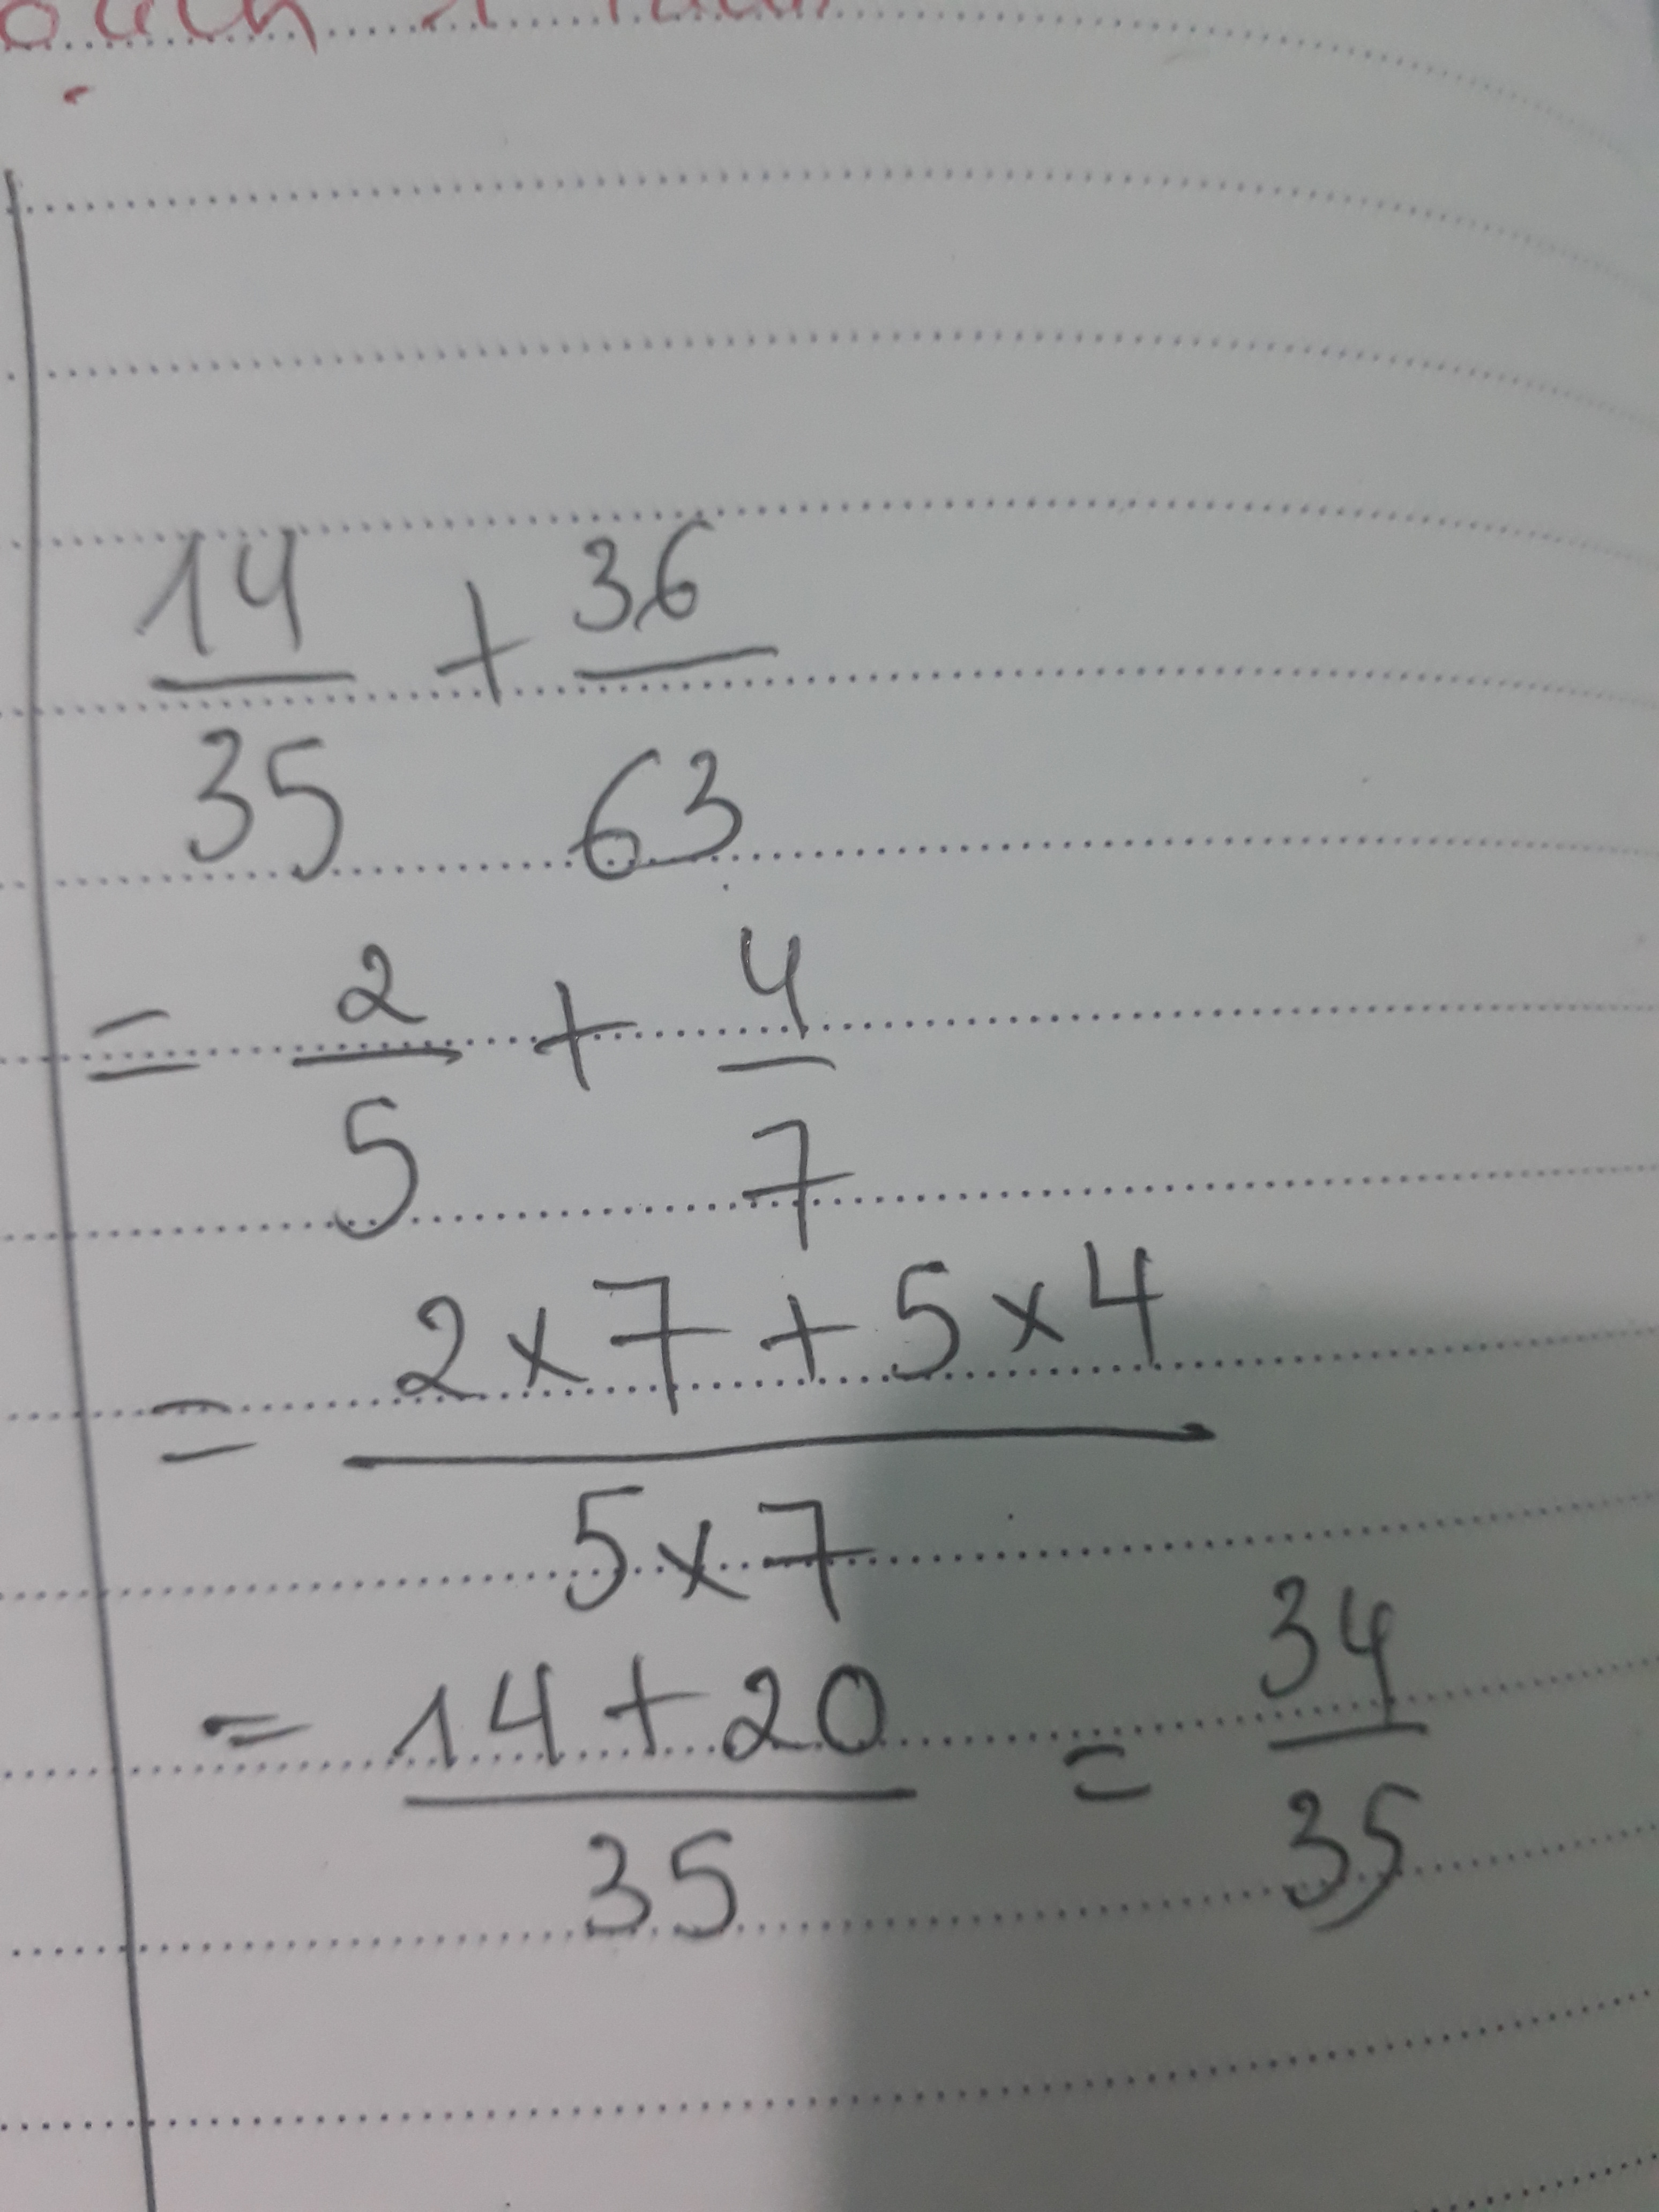 14/35 + 36/63
= 2/5 + 4/7
= (2 x 7 + 5 x 4)/(5 x 7)
= (14 + 20)/35 = 34/35